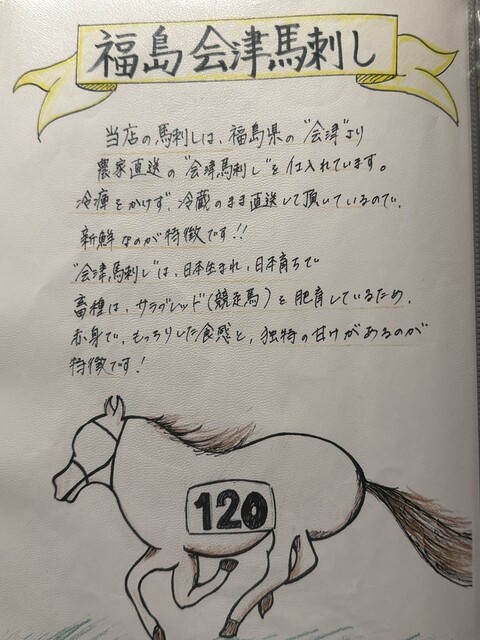 福島会津馬刺し
当店の馬刺しは、福島県の"会津"より
農家直送の"会津馬刺し"を仕入れています。
冷凍をかけず、冷蔵のまま直送して頂いているので、
新鮮なのが特徴です!!
"会津馬刺し"は、日本生まれ、日本育ちで
畜種は、サラブレッド(競走馬)を肥育しているため、
赤身で、もっちりした食感と、独特の甘けがあるのが
特徴です!
120